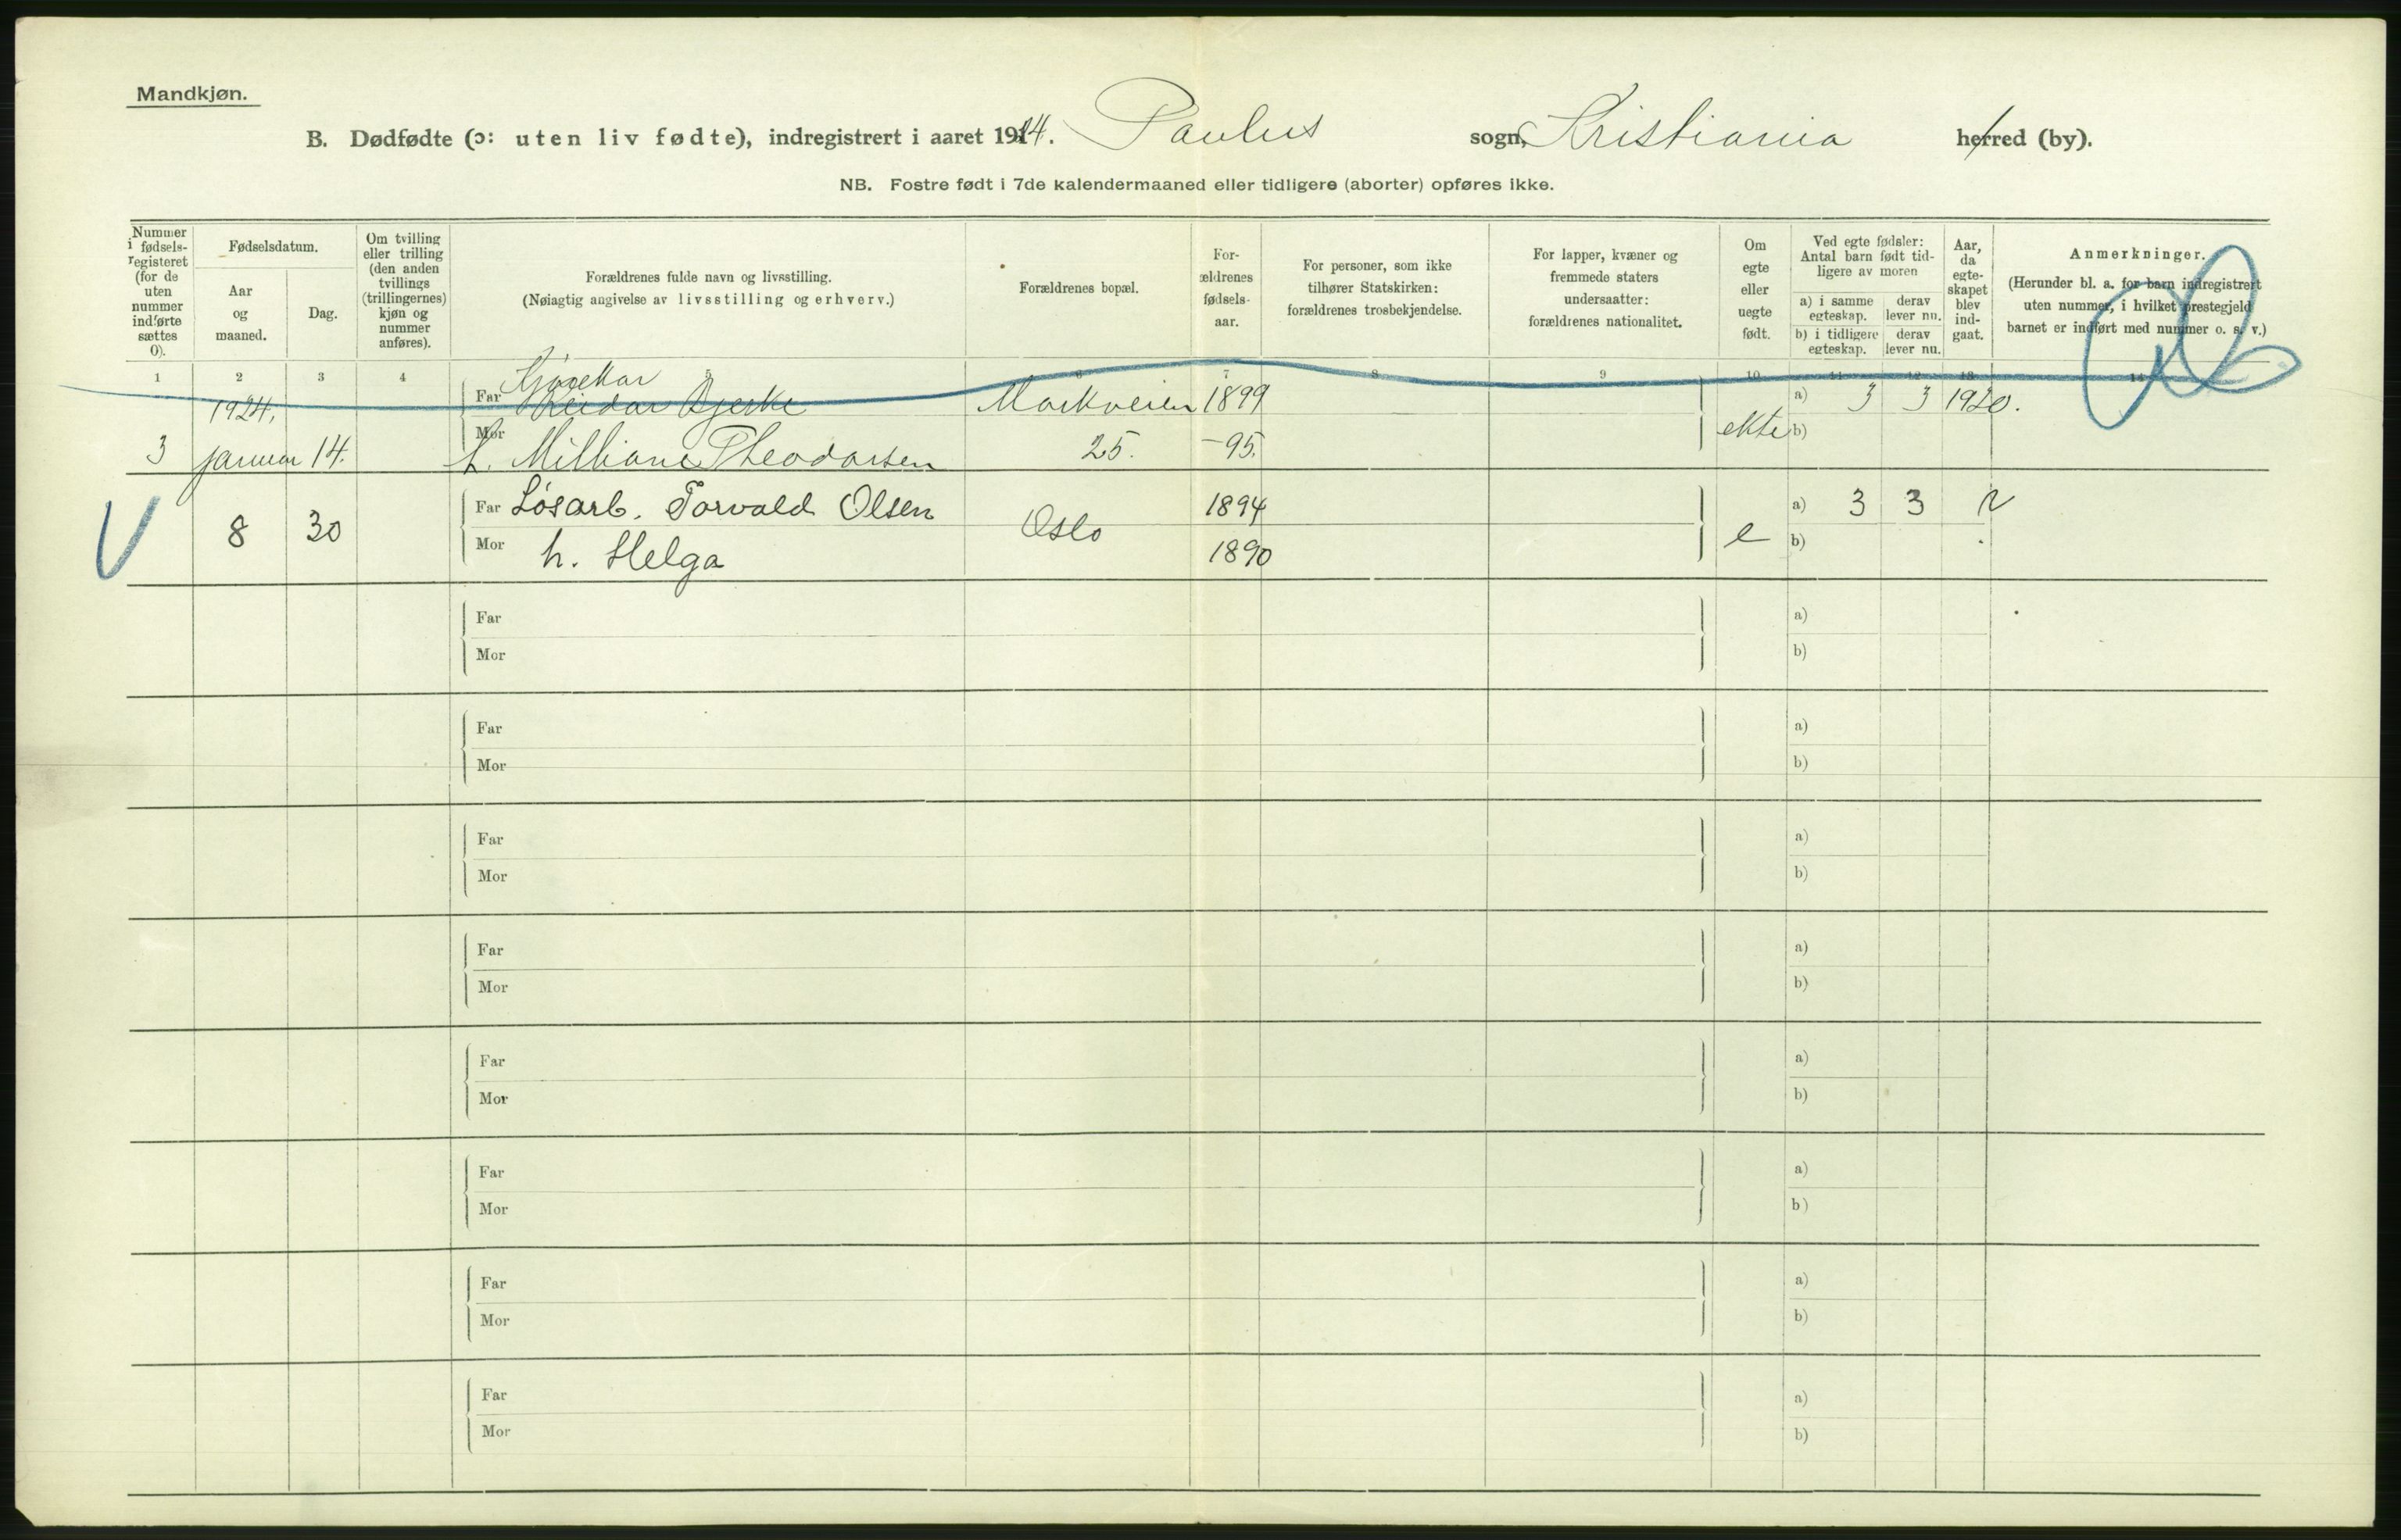 Mandkjøn.
B. Dødfødte (ɔ: uten liv fødte), indregistrert i aaret 1924. Paulus sogn, Kristiania herred (by).
NB. Fostre født i 7de kalendermaaned eller tidligere (aborter) opføres ikke.
Nummer
i fødsels-
registeret
(for de
uten
nummer
indførte
sættes
0).
Fødselsdatum.
Aar
og
maaned.
Dag.
Om tvilling
eller trilling
(den anden
tvillings
(trillingernes)
kjøn og
nummer
anføres).
Forældrenes fulde navn og livsstilling.
(Nøiagtig angivelse av livsstilling og erhverv.)
Forældrenes bopæl.
For-
ældrenes
fødsels-
aar.
For personer, som ikke
tilhører Statskirken:
forældrenes trosbekjendelse.
For lapper, kvæner og
fremmede staters
undersaatter:
forældrenes nationalitet.
Om
egte
eller
uegte
født.
Ved egte fødsler:
Antal barn født tid-
ligere av moren
a) i samme
egteskap.
derav
lever nu.
b) i tidligere
egteskap.
derav
lever nu.
Aar,
da
egte-
skapet
blev
ind-
gaat.
Anmerkninger.
(Herunder bl. a. for barn indregistrert
uten nummer, i hvilket prestegjeld
barnet er indført med nummer o. s. v.)
1 2 3 4 5 6 7 8 9 10 11 12 13 14
1924. Far Reidar Bjerke Markveien 1899 a) 3 3 1920.
Mor ekte b)
3 Januar 14. h. Milliane Theodorsen 25. -95.
Far Løsarb. Torvald Olsen 1894 a) 3 3
8 30 Oslo e
Mor h. Helga 1890 b)
Far a)
Mor b)
Far a)
Mor b)
Far a)
Mor b)
Far a)
Mor b)
Far a)
Mor b)
Far a)
Mor b)
Far a)
Mor b)
Far a)
Mor b)